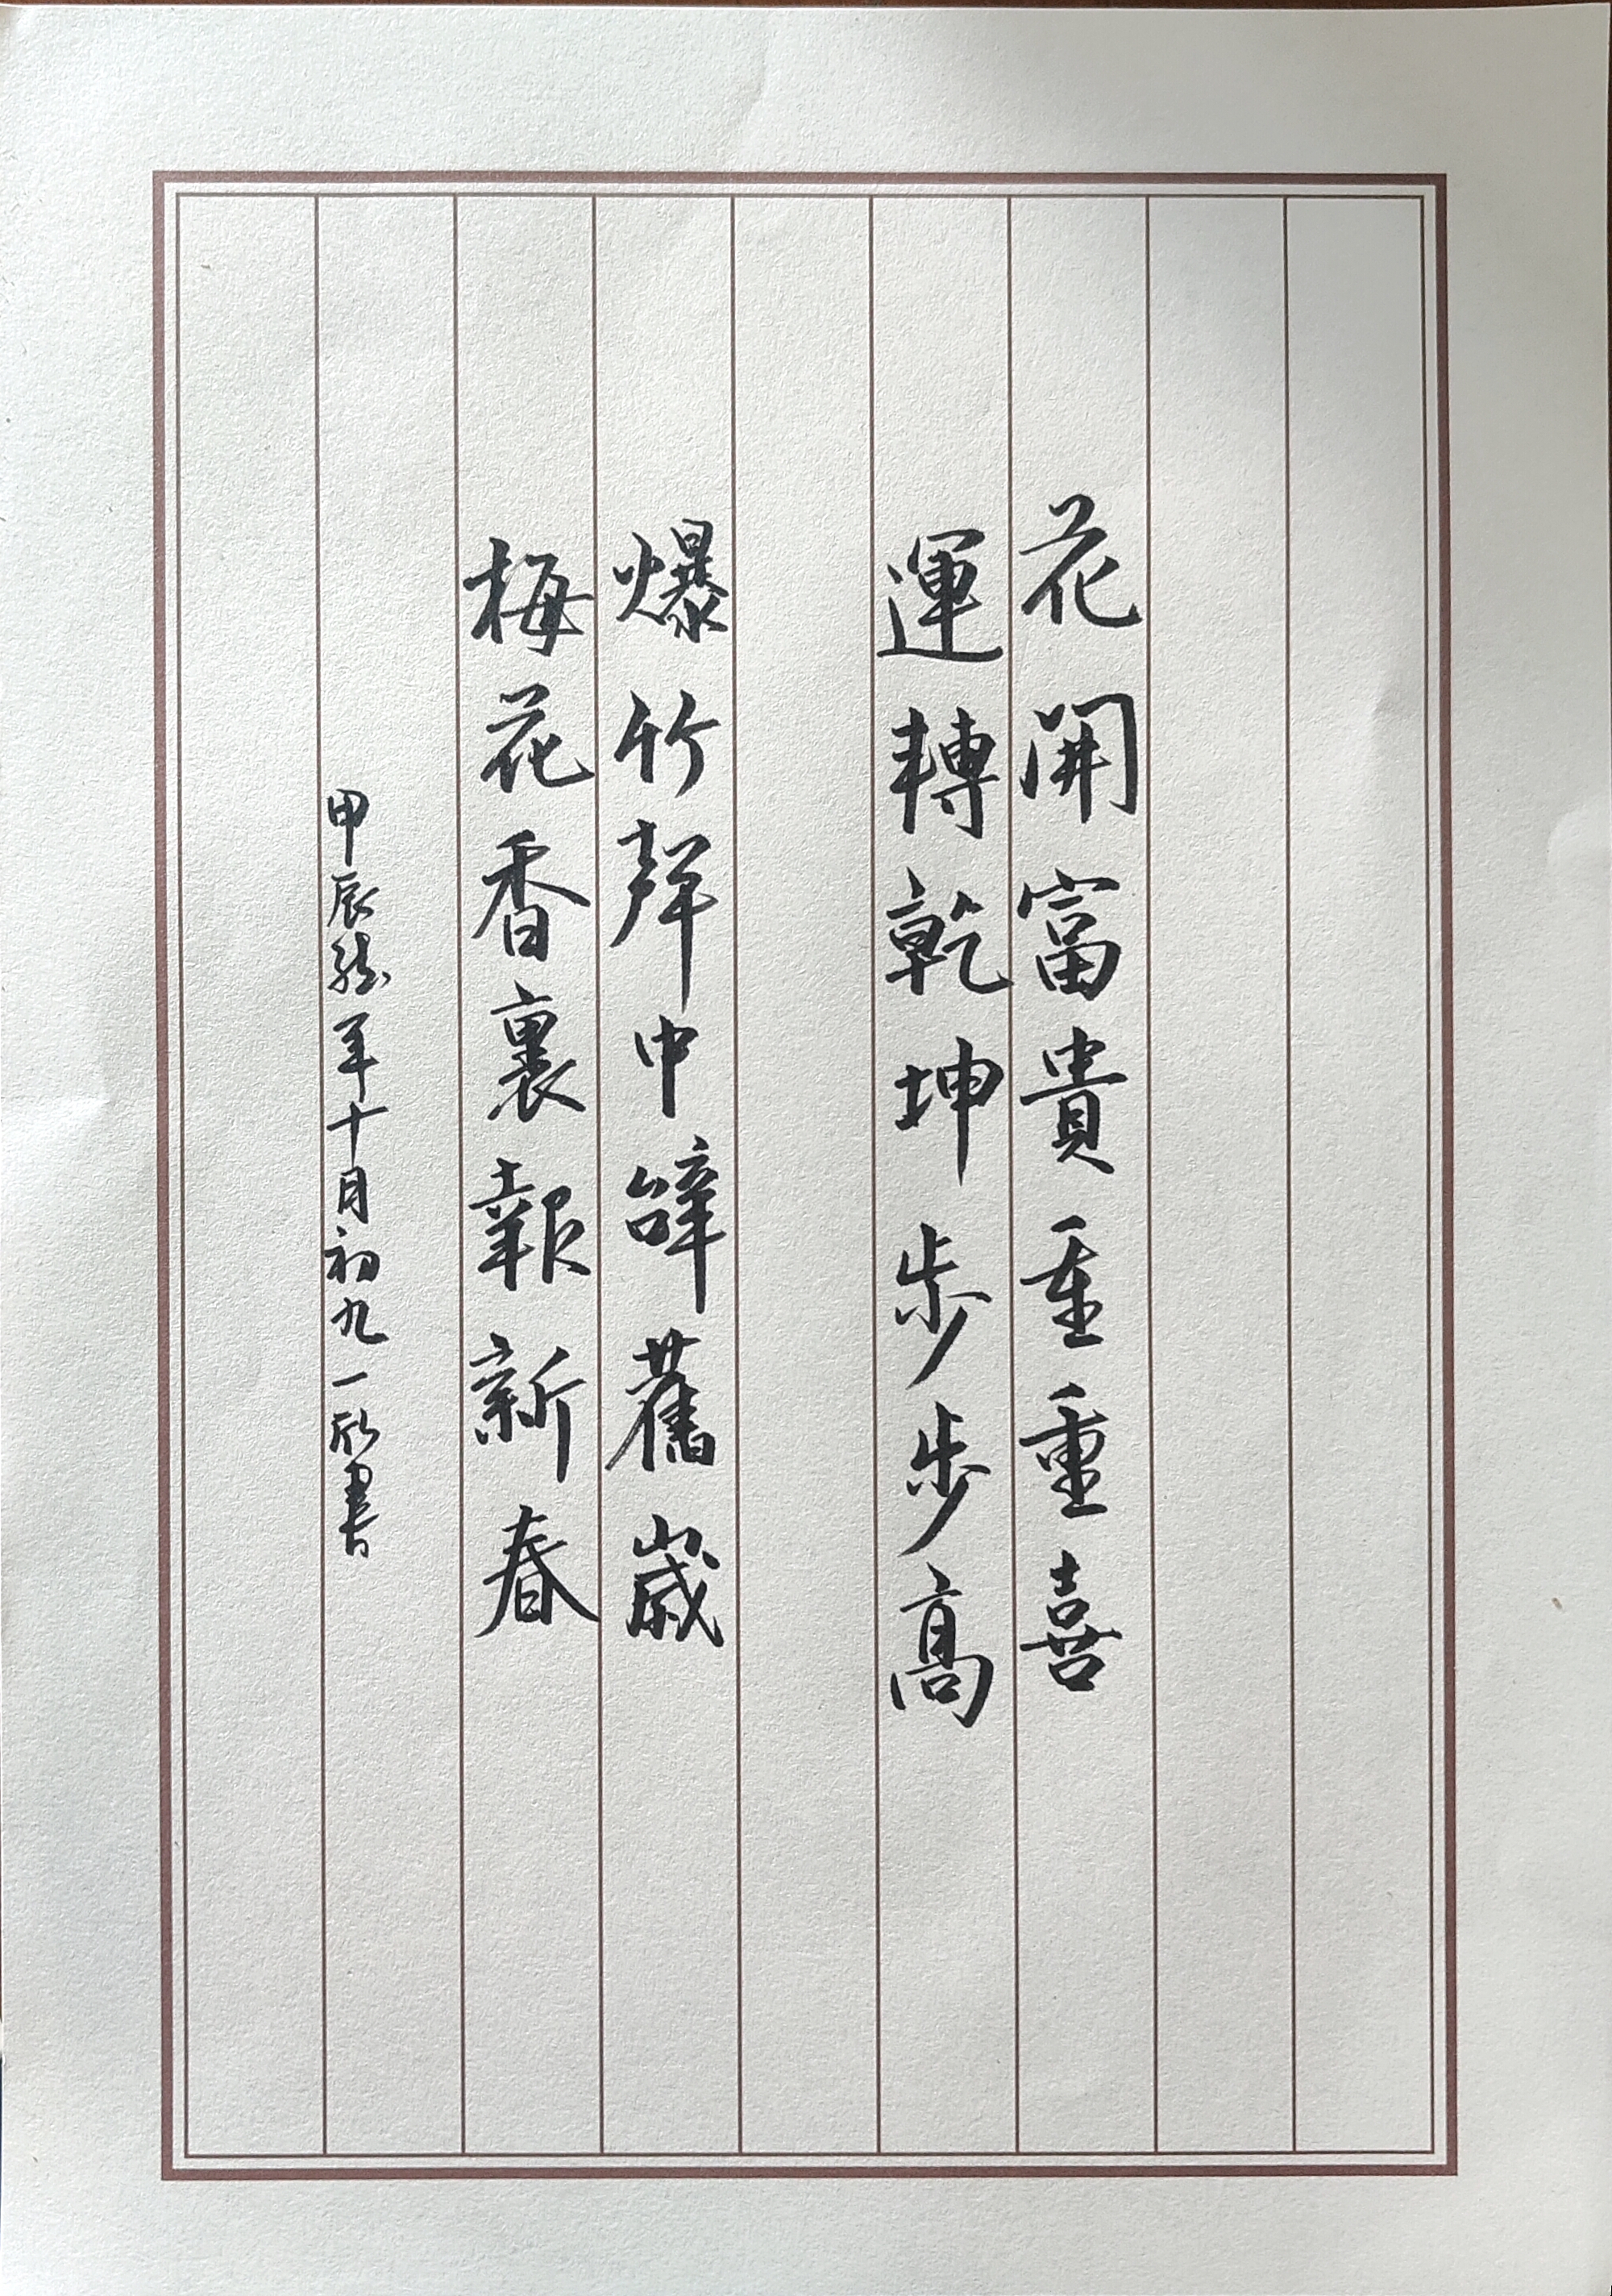 花開富貴重重喜
運轉乾坤步步高
爆竹聲中辭舊歲
梅花香裏報新春
甲辰龍年十月初九一 書